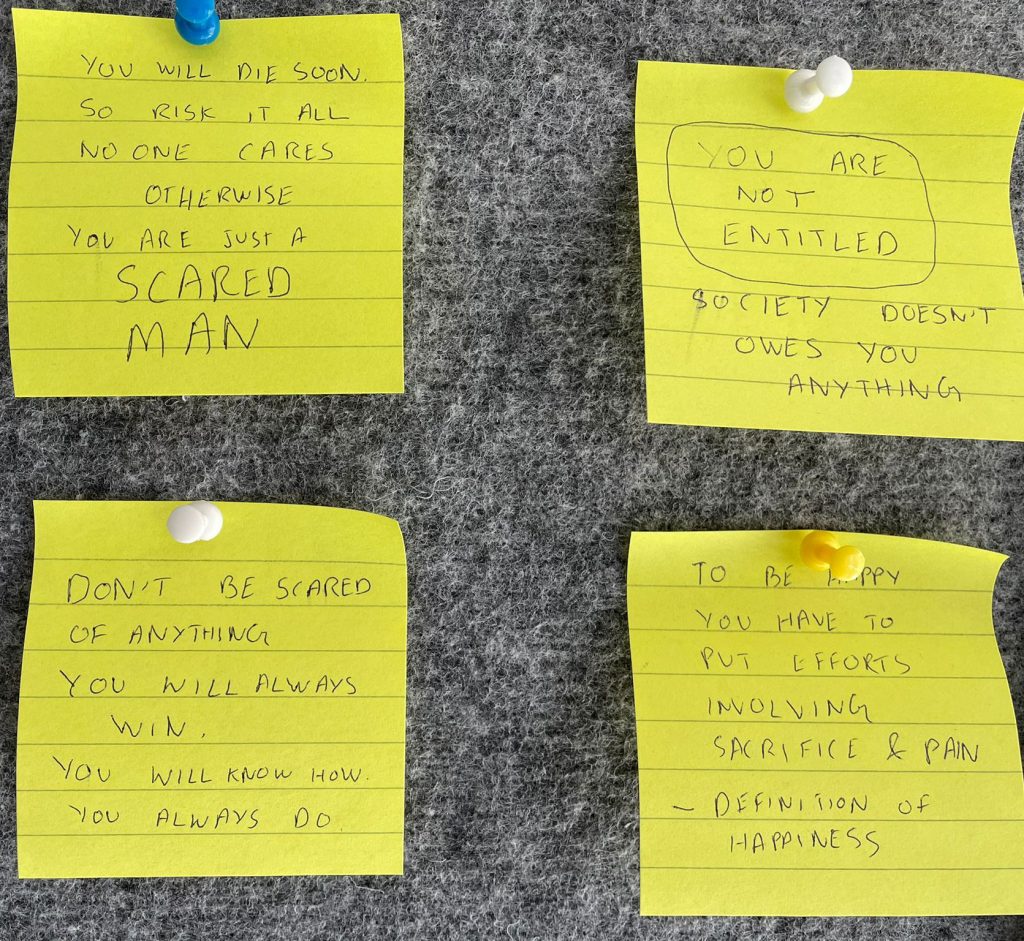 YOU WILL DIE SOON.
SO RISK IT ALL
NO ONE CARES
OTHERWISE
YOU ARE JUST A
SCARED
MAN
YOU ARE
NOT
ENTITLED
SOCIETY DOESN'T
OWES YOU
ANYTHING
DON'T BE SCARED
OF ANYTHING
YOU WILL ALWAYS
WIN.
YOU WILL KNOW HOW.
YOU ALWAYS DO.
TO BE HAPPY
YOU HAVE TO
PUT EFFORTS
INVOLVING
SACRIFICE & PAIN
- DEFINITION OF
HAPPINESS